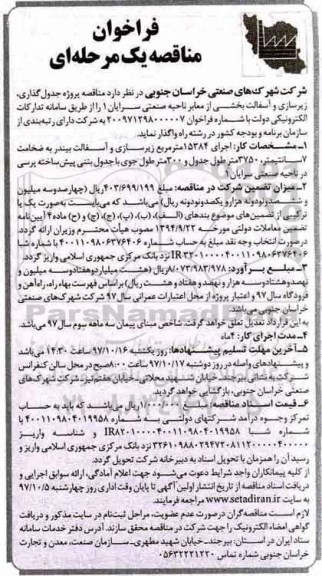 فراخوان
مناقصه یک مرحله‌ای
شرکت شهرک‌های صنعتی خراسان جنوبی در نظر دارد مناقصه پروژه جدول‌گذاری،
زیرسازی و آسفالت بخشی از معابر ناحیه صنعتی سرایان ۱ را از طریق سامانه تدارکات
الکترونیکی دولت با شماره فراخوان ۲۰۰۹۷۱۲۹۸۰۰۰۰۰۷ به شرکت دارای رتبه‌بندی از
سازمان برنامه و بودجه کشور در رشته راه واگذار نماید.
۱ـ مشخصات کار: اجرای ۱۵۳۸۴مترمربع زیرسازی و آسفالت بیندر به ضخامت
۷سانتیمتر، ۲۷۵۰متر طول جدول و ۳۰۰متر طول جوی با جدول بتنی پیش‌ساخته پرسی
در ناحیه صنعتی سرایان ۱
۲ـ میزان تضمین شرکت در مناقصه: مبلغ ۴۰۳/۶۹۹/۱۹۹ریال (چهارصدوسه میلیون
و ششصدونودونه هزار و یکصدونودونه ریال) می‌باشد که می‌بایست به‌صورت یک یا
ترکیبی از تضمین‌های موضوع بندهای (الف)، (ب)، (پ)، (ج)، (چ) و (ح) ماده۴ آیین‌نامه
تضمین معاملات دولتی مورخه ۱۳۹۴/۹/۲۲ مصوب هیأت محترم وزیران ارائه گردد.
درصورت انتخاب وجه نقد مبلغ به حساب شماره ۴۰۰۱۱۰۹۸۰۶۳۷۶۴۰۶ با شماره شبا
نزد بانک مرکزی جمهوری اسلامی واریز گردد.
۳ـ مبلغ برآورد: ۸/۰۷۳/۹۸۳/۹۷۸ریال (هشت میلیارد و هفتادوسه میلیون و
نهصد و هشتادوسه هزار و نهصد و هفتاد و هشت ریال) براساس فهرست بهاء راه، راه‌آهن و
فرودگاه سال ۹۷ و اعتبار پروژه از محل اعتبارات عمرانی سال ۹۷ شرکت شهرک‌های صنعتی
خراسان جنوبی می‌باشد.
به این قرارداد تعدیل تعلق خواهد گرفت. شاخص مبنای پیمان سه ماهه سوم سال ۹۷ می‌باشد.
۴ـ مدت اجرای کار: ۴ماه
۵ـ آخرین مهلت تسلیم پیشنهادها: روز یکشنبه ۹۷/۱۰/۱۶ ساعت ۱۴:۳۰ می‌باشد
و پیشنهادهای واصله در روز دوشنبه ۹۷/۱۰/۱۷ ساعت ۸:۰۰صبح در محل سالن کنفرانس
شرکت به نشانی بیرجند، خیابان شهید محلاتی، خیابان هفتم تیر، شرکت شهرک‌های
صنعتی خراسان جنوبی، بازگشایی خواهد گردید.
۶ـ قیمت اسناد مناقصه: مبلغ ریال می‌باشد که باید به حساب
تمرکز وجوه درآمد شرکتهای دولتی به شماره ۴۰۰۱۱۰۹۸۰۴۰۱۹۹۵۸ با
شماره شبا و شناسه واریز
نزد بانک مرکزی جمهوری اسلامی واریز و
رسید آن را همزمان با تحویل اسناد به دبیرخانه شرکت تحویل گردد.
از کلیه پیمانکاران واجد شرایط دعوت می‌شود جهت اعلام آمادگی، ارائه سوابق اجرایی و
دریافت اسناد مناقصه از تاریخ انتشار اولین آگهی تا پایان وقت اداری روز چهارشنبه ۹۷/۱۰/۵
به سایت www.setadiran.ir مراجعه فرمایند.
لازم است مناقصه‌گران درصورت عدم عضویت، مراحل ثبت‌نام در سایت مذکور و دریافت
گواهی امضاء الکترونیک را جهت شرکت در مناقصه محقق سازند. آدرس دفتر خدمات سامانه
ستاد ایران در استان: بیرجند، خیابان شهید مطهری ـ سازمان صنعت، معدن و تجارت
خراسان جنوبی شماره تماس ۰۵۶۳۲۲۲۱۲۲۰